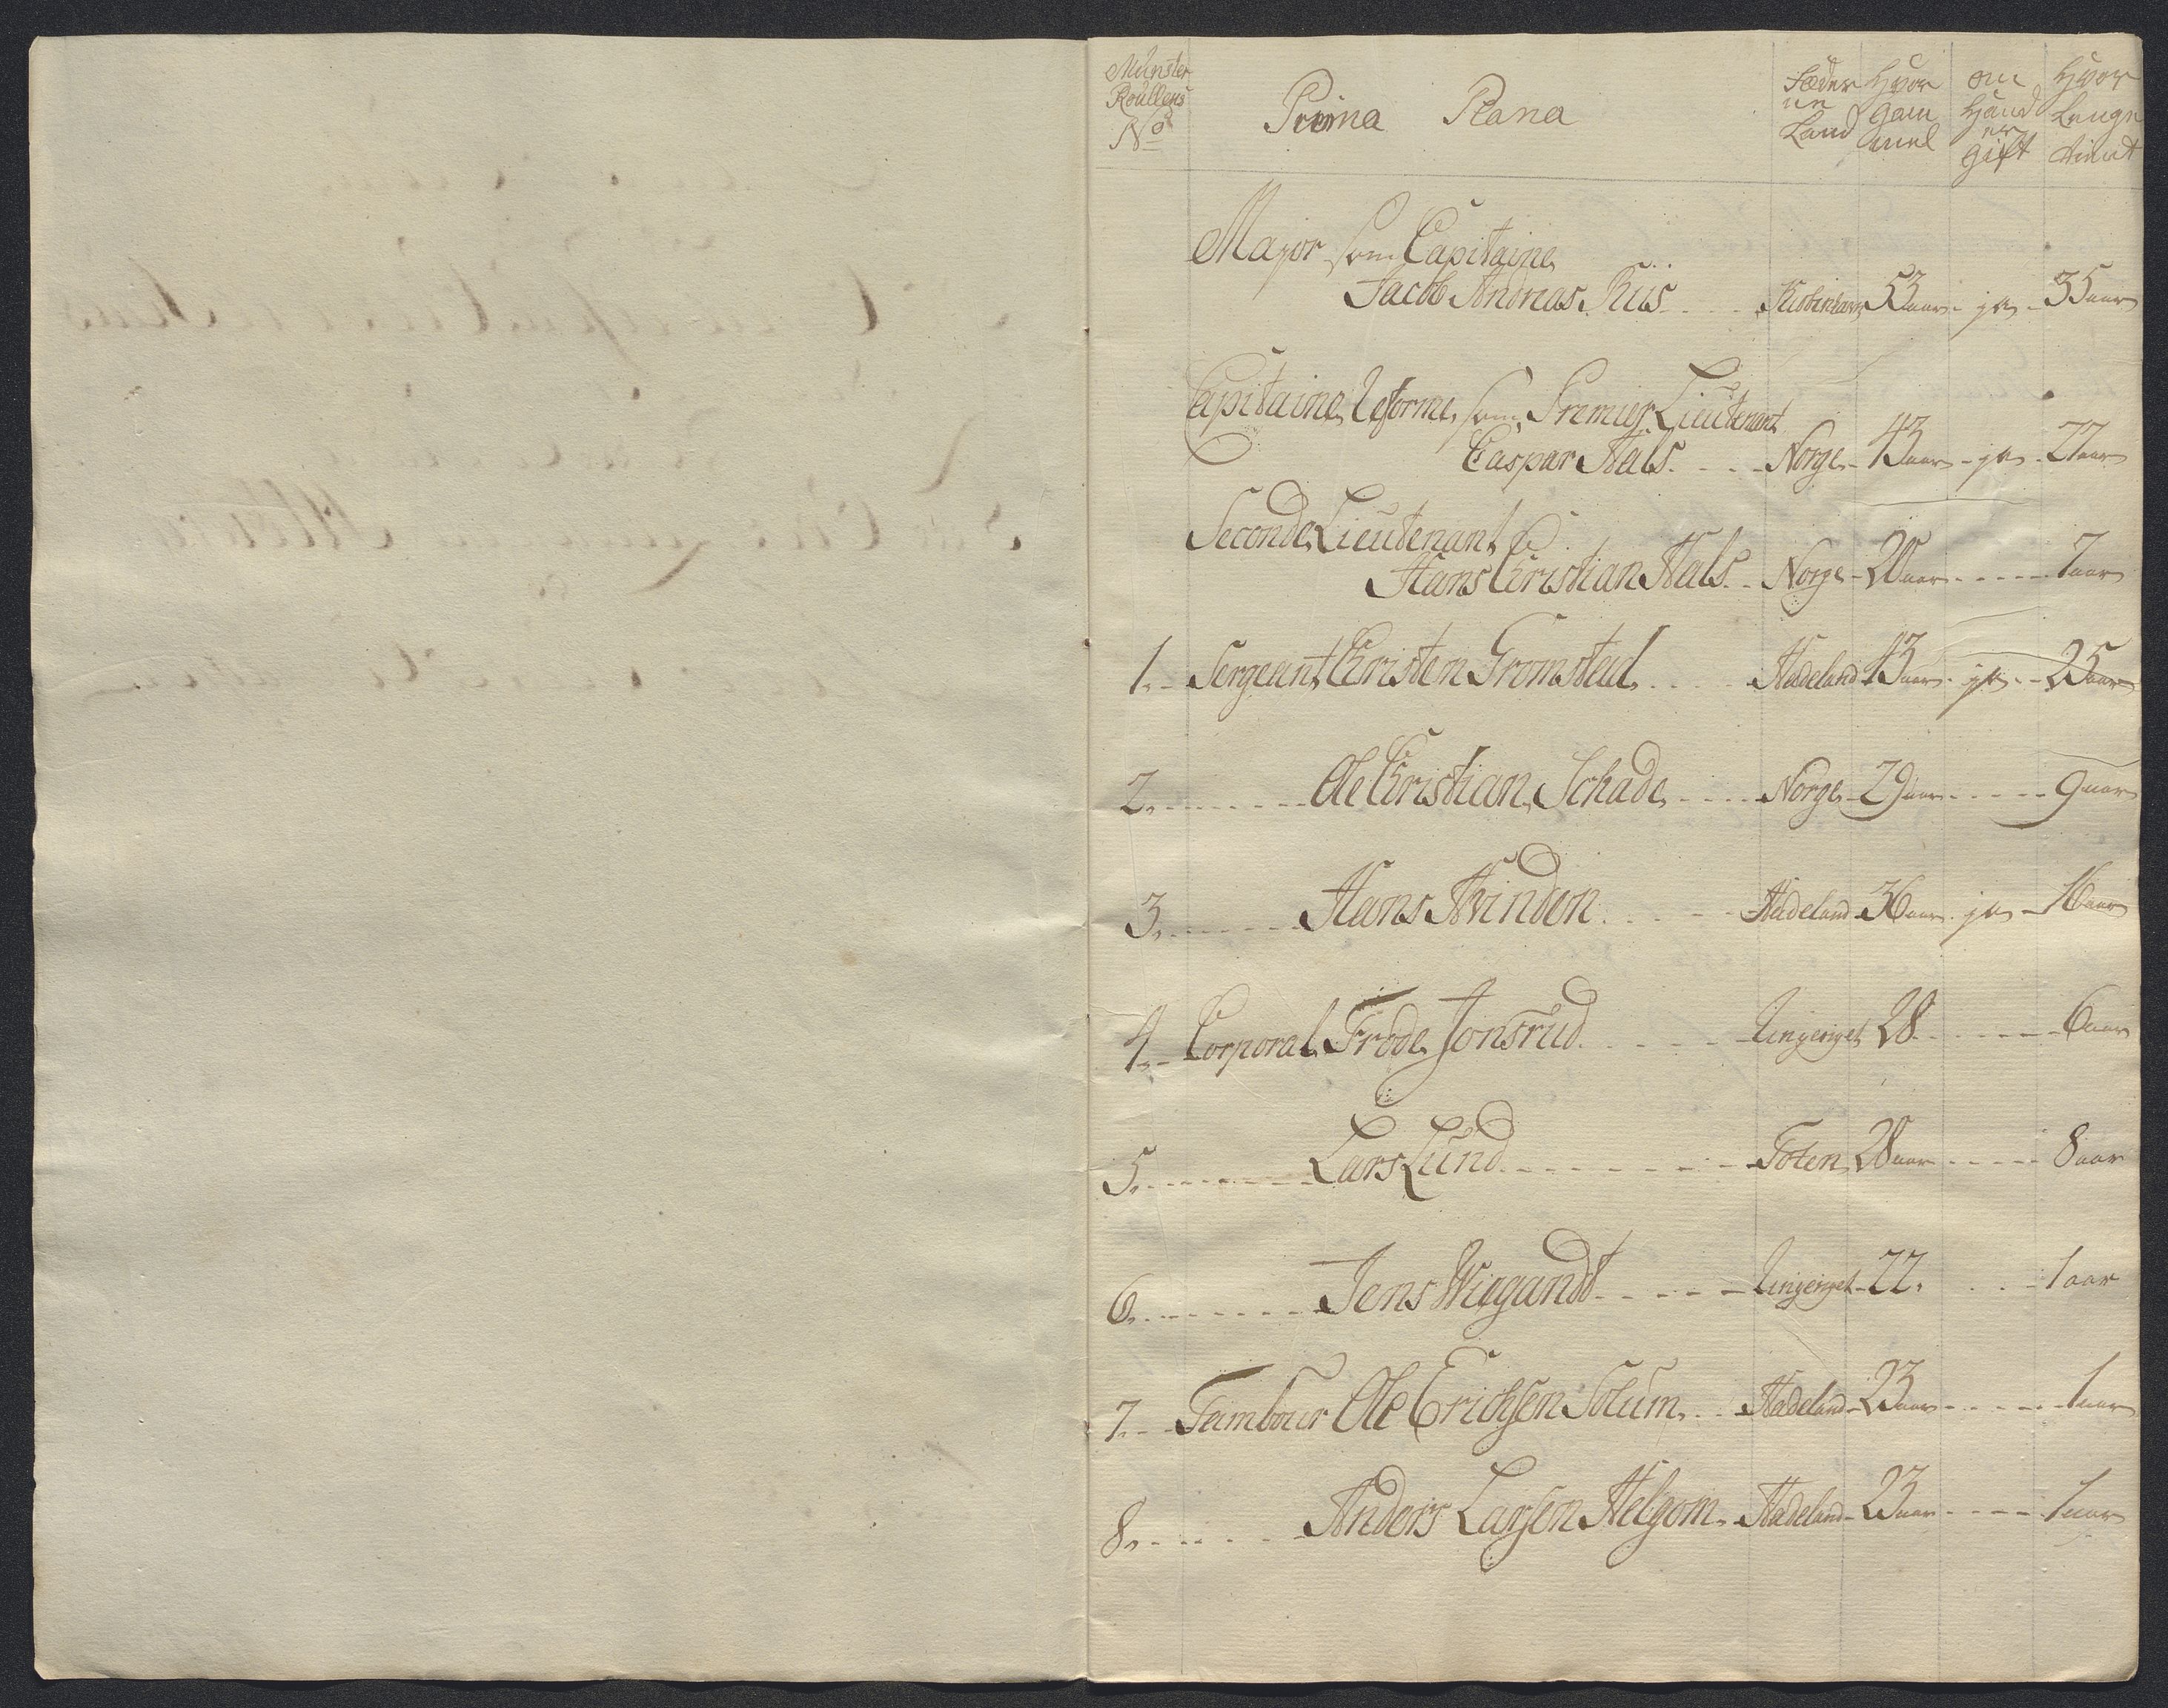 Munster Roullens No Prima Plana Føderne Land Hvor gammel om Hand er gift Hvor Lenge tient
Major som Capitaine
Jacob Andreas Riis 53 aar ja 35 aar
Capitaine Reforme som Premier Lieutenant
Caspar Hals Norge 43 aar ja 27 aar
Seconde Lieutenant
Hans Christian Hals Norge 20 aar 7 aar
1. Sergeant Christen Gromstad Hadeland 43 aar ja 25 aar
2. Ole Christian Schade Norge 29 aar 9 aar
3. Hans Hvinden Hadeland 36 aar ja 16 aar
4. Corporal Frode Jonsrud Ringeriget 28 6 aar
5. Lars Lund Toten 28 aar 8 aar
6. Jens Wiegandt Ringeriget 22. 1 aar
7. Tambour Ole Erichsen Solum Hadeland 23 aar 1 aar
8. Anders Larsen Helgom Hadeland 23 aar 1 aar